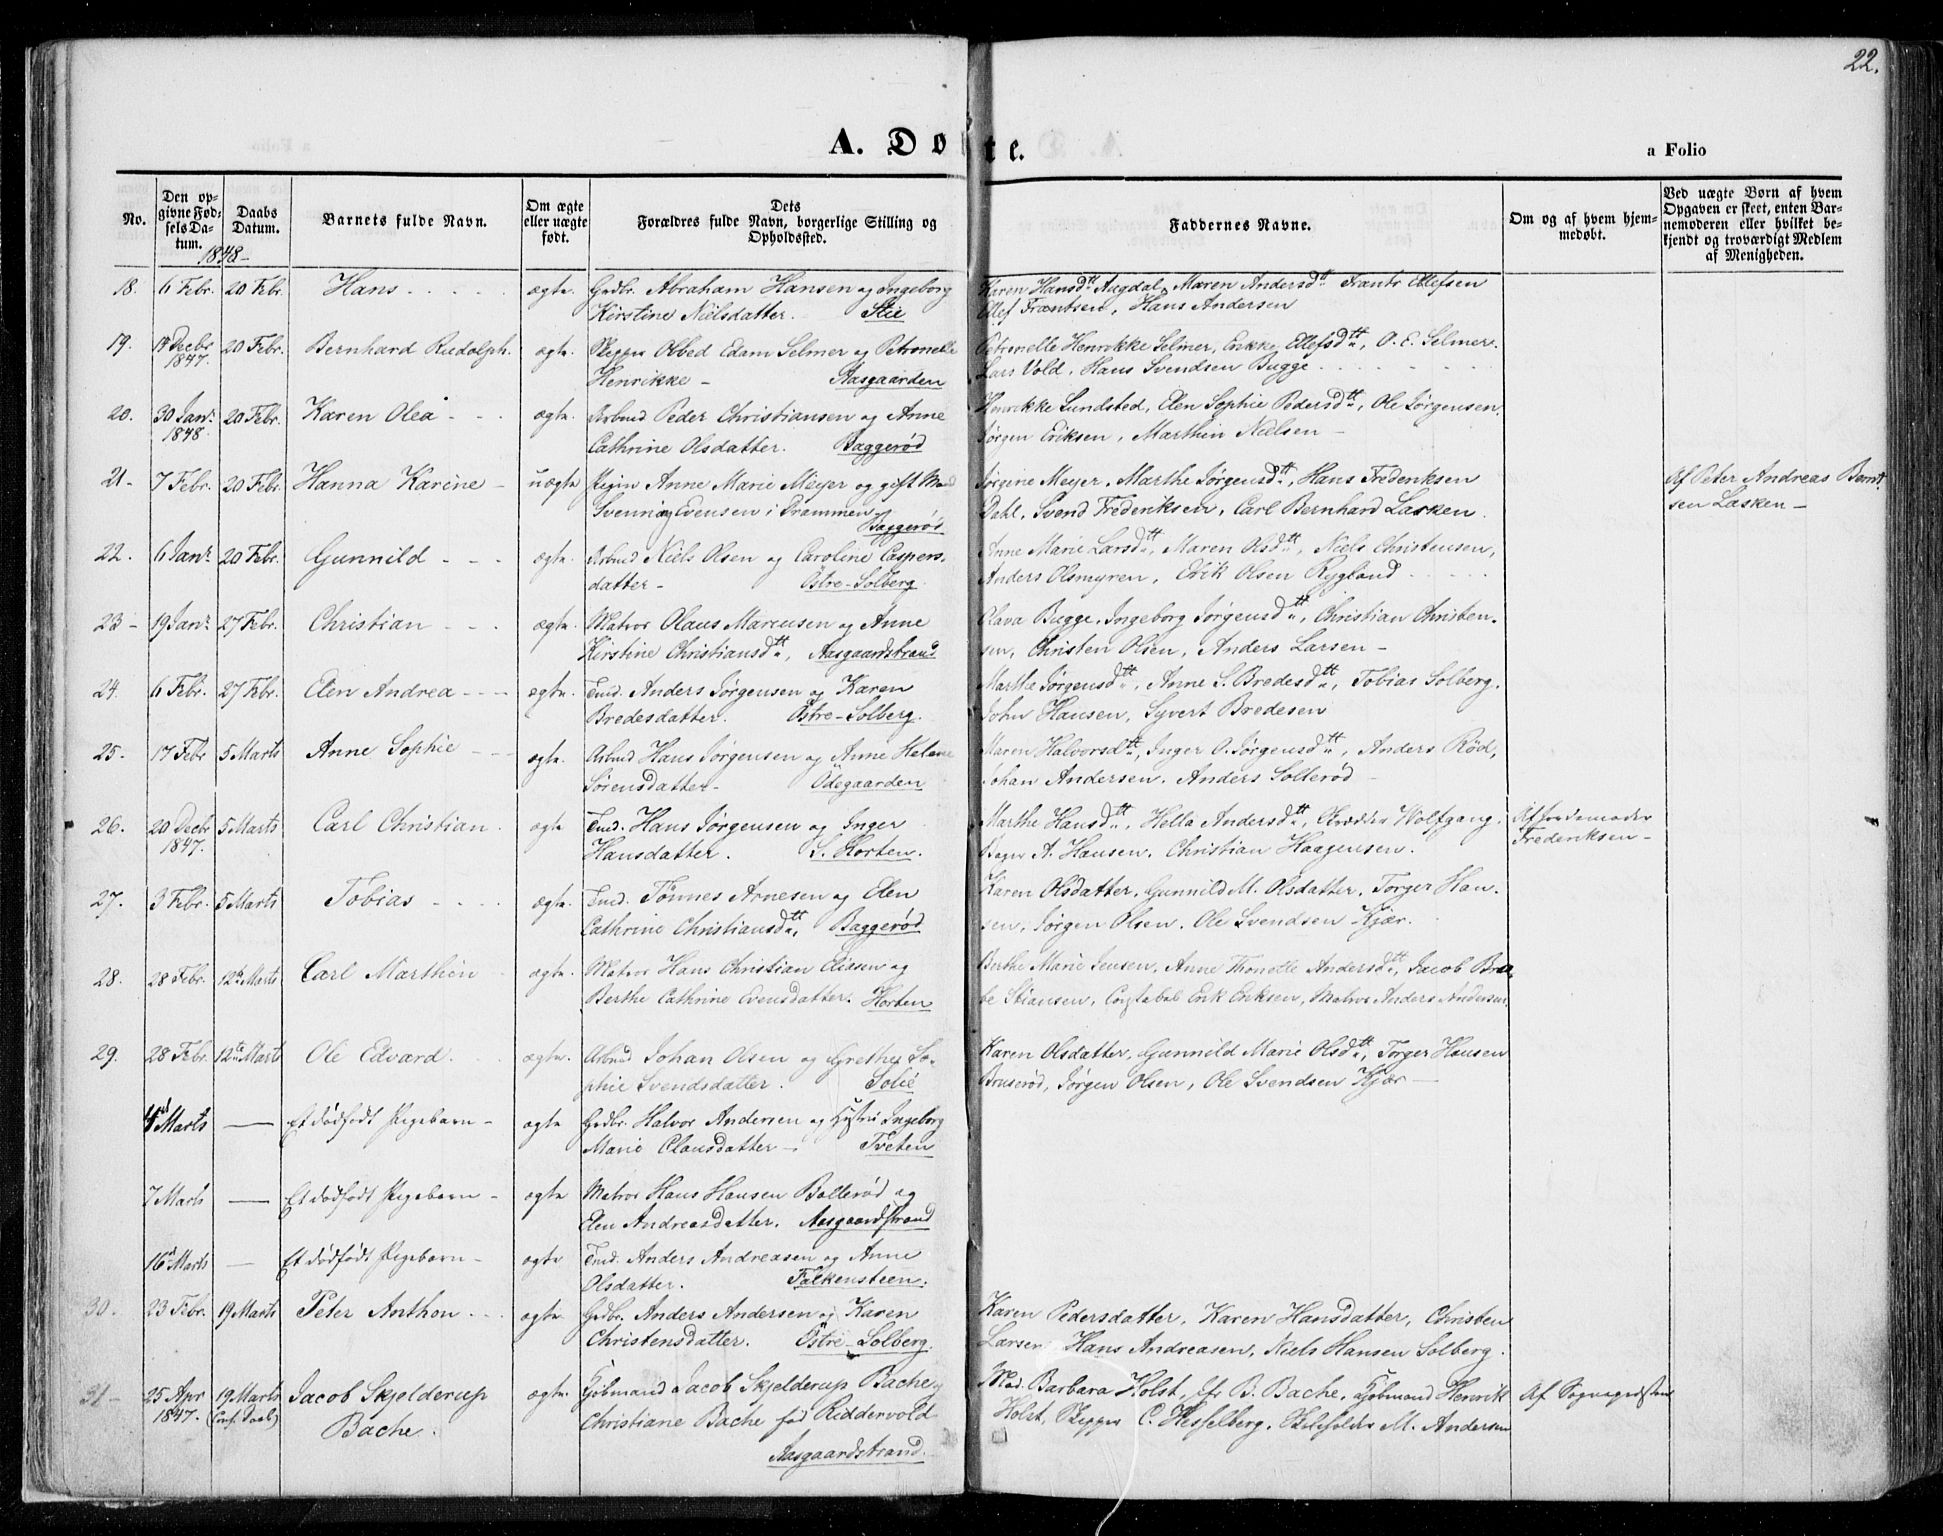 22.
A. Døbte.
a Folio
No.
Den opgivne Fødselsdatum.
Daabs Datum.
Barnets fulde Navn.
Om ægte eller uægte født.
Dets Forældres fulde Navn, borgerlige Stilling og Opholdssted.
Faddernes Navne.
Om og af hvem hjemmedøbt.
Ved uægte Børn af hvem Opgaven er skeet, enten Barnemoderen eller hvilket bekjendt og troværdigt Medlem af Menigheden.
1848-
18. 6 Febr. 20 Febr. Hans ægte. Grdbr. Abraham Hansen og Ingeborg Karen Hansdtt Augdal, Maren Andersdtt Frants Ellefsen
Kirstine Nielsdatter. Stie Ellef Frantsen, Hans Andersen
19. 14 Decbr 20 Febr. Bernhard Rudolph. ægte. Skipper Obbed Edam Selmer og Petronelle Petronelle Henrikke Selmer, Enkke Ellefsdtt, O. E. Selmer.
1847. Henrikke - Aasgaarden Lars Vold, Hans Svendsen Bugge
20. 30 Janr. 20 Febr. Karen Olea ægte. Arbmd Peder Christiansen og Anne Henrikke Lundsted, Elen Sophie Pedersdtt, Ole Jørgensen,
1848. Cathrine Olsdatter. Baggerød Jørgen Eriksen, Marthin Nielsen -
21- 7 Febr. 20 Febr. Hanna Karine - uægte Pigen Anne Marie Meyer og gift Mand Jørgine Meyer, Marthe Jørgensdtt, Hans Frederiksen Af Peter Andreas Bernt
Svenning Evensen i Drammen Dahl, Svend Frederiksen, Carl Bernhard Lasken. sen Lasken -
Baggerød
22. 6 Janr 20 Febr. Gunnild ægte. Arbmd Niels Olsen og Caroline Caspers- Anne Marie Larsdtt, Maren Olsdtt, Niels Christensen,
datter - Østre-Solberg. Anders Olsmyren, Erik Olsen Rygland
23- 19 Janr. 27 Febr. Christian ægte. Matros Olaus Marcusen og Anne Olava Bugge, Ingeborg Jørgensdtt, Christian Christen-
Kirstine Christiansdtt, Aasgaardstrand sen, Christen Olsen, Anders Larsen -
24. 6 Febr. 27 Febr. Elen Andrea ægte. Tmd. Anders Jørgensen og Karen Marthe Jørgensdtt, Anne S. Bredesdtt, Tobias Solberg.
Bredesdatter. Østre-Solberg. John Hansen, Syvert Bredesen
25. 17 Febr 5 Marts Anne Sophie ægte. Arbmd Hans Jørgensen og Anne Helene Maren Halvorsdtt, Inger O. Jørgensdtt, Anders Rød,
Sørensdatter - Ødegaarden Johan Andersen, Anders Sollerød
26. 20 Decbr 5 Marts Carl Christian. ægte Tmd. Hans Jørgensen og Inger Marthe Hansdtt, Hella Andersdtt, Skrædder Wolfgang. Af Jordemoder
1847. Hansdatter. S. Horten. Bager A. Hansen. Christian Haagensen. Frederiksen -
27. 3 Febr. 5 Marts Tobias ægte. Tmd. Tønnes Arnesen og Elen Karen Olsdatter, Gunnild M. Olsdatter, Torger Han-
Cathrine Christiansdtt, Baggerød sen, Jørgen Olsen, Ole Svendsen Kjær.
28. 28 Febr. 12te Marts Carl Marthin ægte. Matros Hans Christian Eliasen og Berthe Marie Jensen, Anne Thonette Andersdtt, Jacob Bra-
Berthe Cathrine Evensdatter. Horten te Stiansen, Constabel Erik Eriksen, Matros Anders Andersen
29. 28 Febr. 12te Marts Ole Edvard. ægte. Arbmd Johan Olsen og Grethe So- Karen Olsdatter, Gunnild Marie Olsdtt, Torger Hansen
phie Svendsdatter. Solie Bruserød, Jørgen Olsen, Ole Svendsen Kjær -
4de Marts - Et dødfødt Pigebarn - ægte Grdbr. Halvor Andersen og Hustru Ingeborg
Marie Clausdatter - Tveten
7 Marts - Et dødfødt Pigebarn - ægte Matros Hans Hansen Bollerød og
Elen Andreasdatter. Aasgaardstrand
16 Marts - Et dødfødt Pigebarn - ægte Tmd. Anders Andreasen og Anne
Olsdatter. Falkensteen.
30. 23 Febr. 19 Marts Peter Anthon ægte. Grdbr. Anders Andersen og Karen Karen Pedersdatter, Karen Hansdatter, Christen
Christensdatter. Østre-Solberg. Larsen Hans Andreasen, Niels Hansen Solberg.
31- 25 Apr 19 Marts Jacob Skjelderup ægte. Kjøbmand Jacob Skjelderup Bache og Mad. Barbara Holst, Jfr B. Bache, Kjøbmand Henrik Af Sognepresten
1847. (Conf. Daab) Bache. Christiane Bache fød Riddervold Holst, Skipper C. Hesselberg, Skoleholder M. Andersen
Aasgaardstrand.